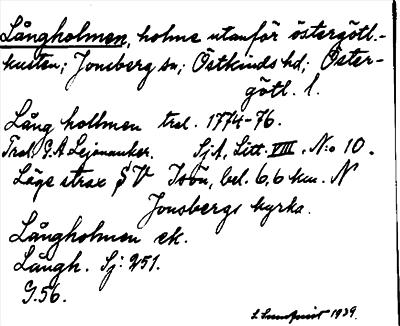 Långholmen, holme utanför östergötl.-
kusten; Jonsberg sn; Östkinds hd; Öster-
götl. l.
Lång hollmen trol. 1774-76.
Trol. G.A Leijonanker. SjA, Litt. VIII, N:o 10.
Läge strax SV Isön, bel. 6,6 km. N
Jonsbergs kyrka.
Långholmen ek.
Långh. Sj: 251.
G.56.
S Sundquist 1939.